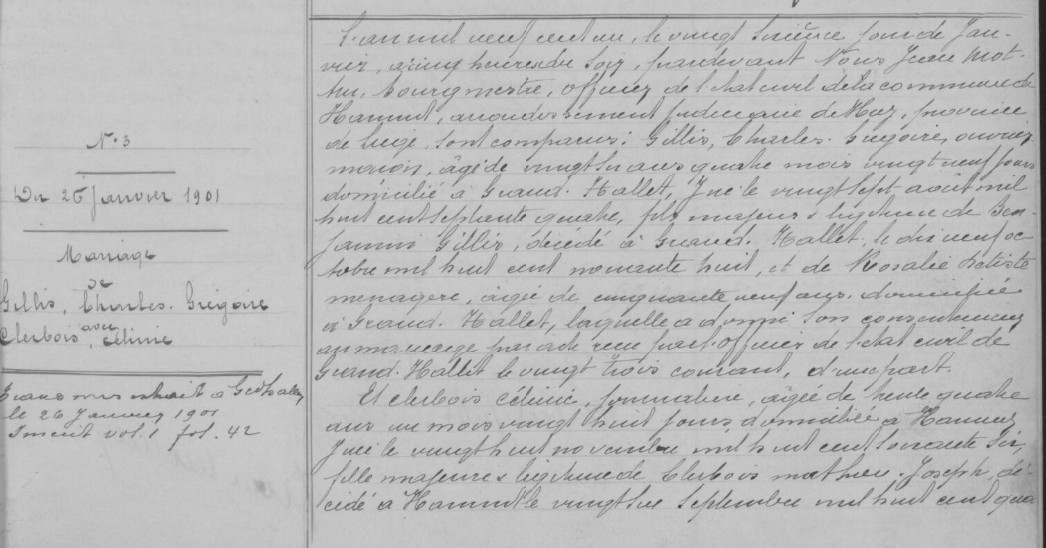 N° 3
Du 26 janvier 1901
Mariage
de
Gillis, Charles-Grégoire
avec
Clerbois, Célinie
Transmis extrait à Gd Hallet
le 26 Janvier 1901
Inscrit vol. 1 fol. 42
L'an mil neuf cent un, le vingt sixième jour de Jan-
vier, à cinq heures du soir, pardevant Nous Jean Mot-
tin, bourgmestre, officier de l'état civil de la commune de
Hannut, arrondissement judiciaire de Huy, province
de Liège, sont comparus: Gillis, Charles-Grégoire, ouvrier
maçon, âgé de vingt six ans quatre mois vingt neuf jours
domicilié à Grand-Hallet, y né le vingt sept août mil
huit cent septante quatre, fils majeur & légitime de Ben-
jamin Gillis, décédé à Grand-Hallet, le dix neuf oc-
tobre mil huit cent nonante huit, et de Rosalie Petiste
ménagère, âgée de cinquante neuf ans, domiciliée
à Grand-Hallet, laquelle a donné son consentement
au mariage par acte reçu par l'officier de l'état civil de
Grand-Hallet le vingt trois courant, d'une part.
Et Clerbois Célinie, journalière, âgée de trente quatre
ans un mois vingt huit jours domiciliée à Hannut
y née le vingt huit novembre mil huit cent soixante six,
fille majeure & légitime de Clerbois Mathieu-Joseph, dé-
cédé à Hannut le vingt six septembre mil huit cent qua